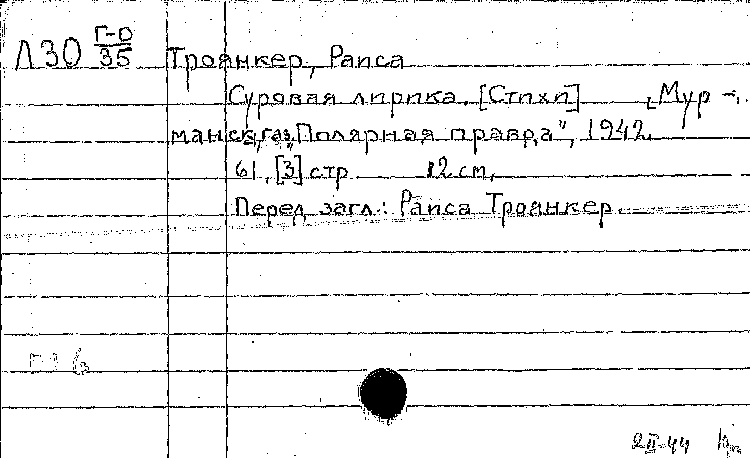 Г-0
Л30 35 Троянкер, Раиса
Суровая лирика. [Стихи] [Мур-
манск, газ. "Полярная правда", 1942.
61, [3] стр. 12 см.
Перед загл.: Раиса Троянкер.
2 II-44